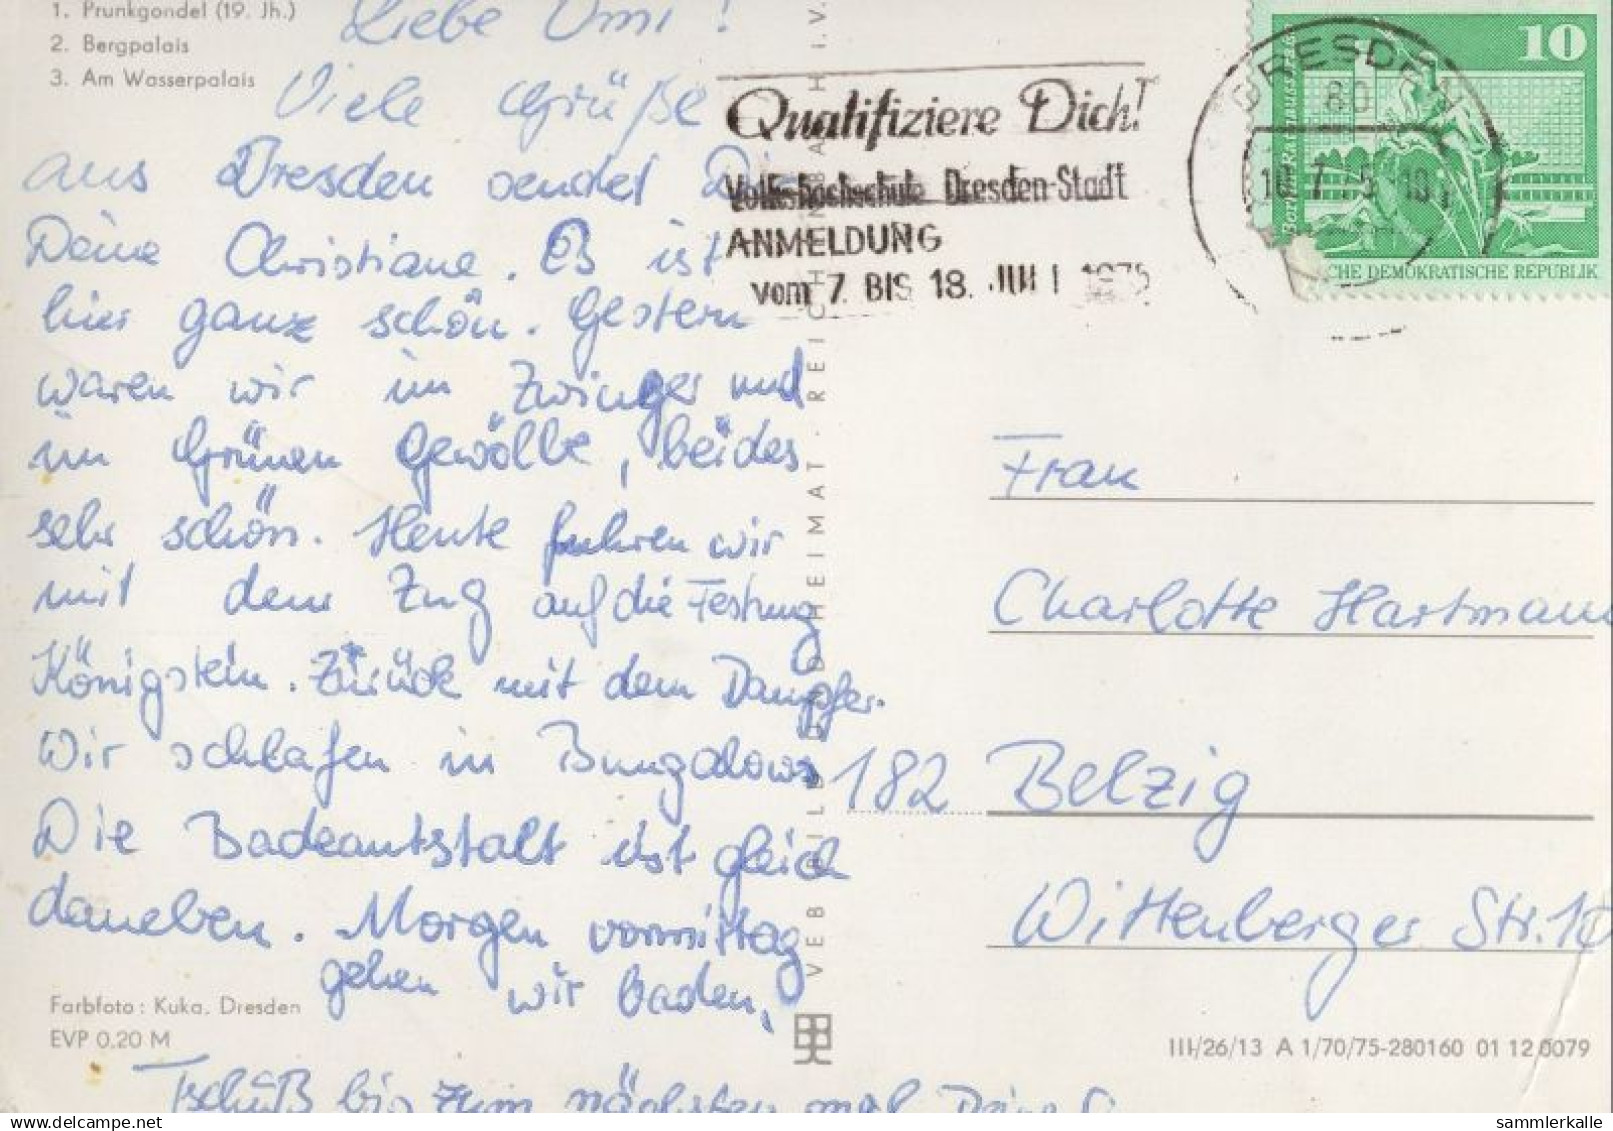 1. Prunkgondel (19. Jh.)
2. Bergpalais
3. Am Wasserpalais
Liebe Omi!
Viele Grüße
aus Dresden sendet Dir
Deine Christiane. Es ist
hier ganz schön. Gestern
waren wir im Zwinger und
im Grünen Gewölbe, beides
sehr schön. Heute fuhren wir
mit dem Zug auf die Festung
Königstein. Zurück mit dem Dampfer.
Wir schlafen in Bungalows
Die Badeanstalt ist gleich
daneben. Morgen vormittag
gehen wir baden,
Tschüß bis zum nächsten mal Deine C
Farbfoto: Kuka, Dresden
EVP 0,20 M
VEB BILD UND HEIMAT · REICHENBACH I. V.
Qualifiziere Dich!
Volkshochschule Dresden-Stadt
ANMELDUNG
vom 7. BIS 18. JULI 1975
DRESDEN
80
10
CHE DEMOKRATISCHE REPUBLIK
Frau
Charlotte Hartmann
182 Belzig
Wittenberger Str. 10
III/26/13 A 1/70/75-280160 01 12 0079
sammlerkalle